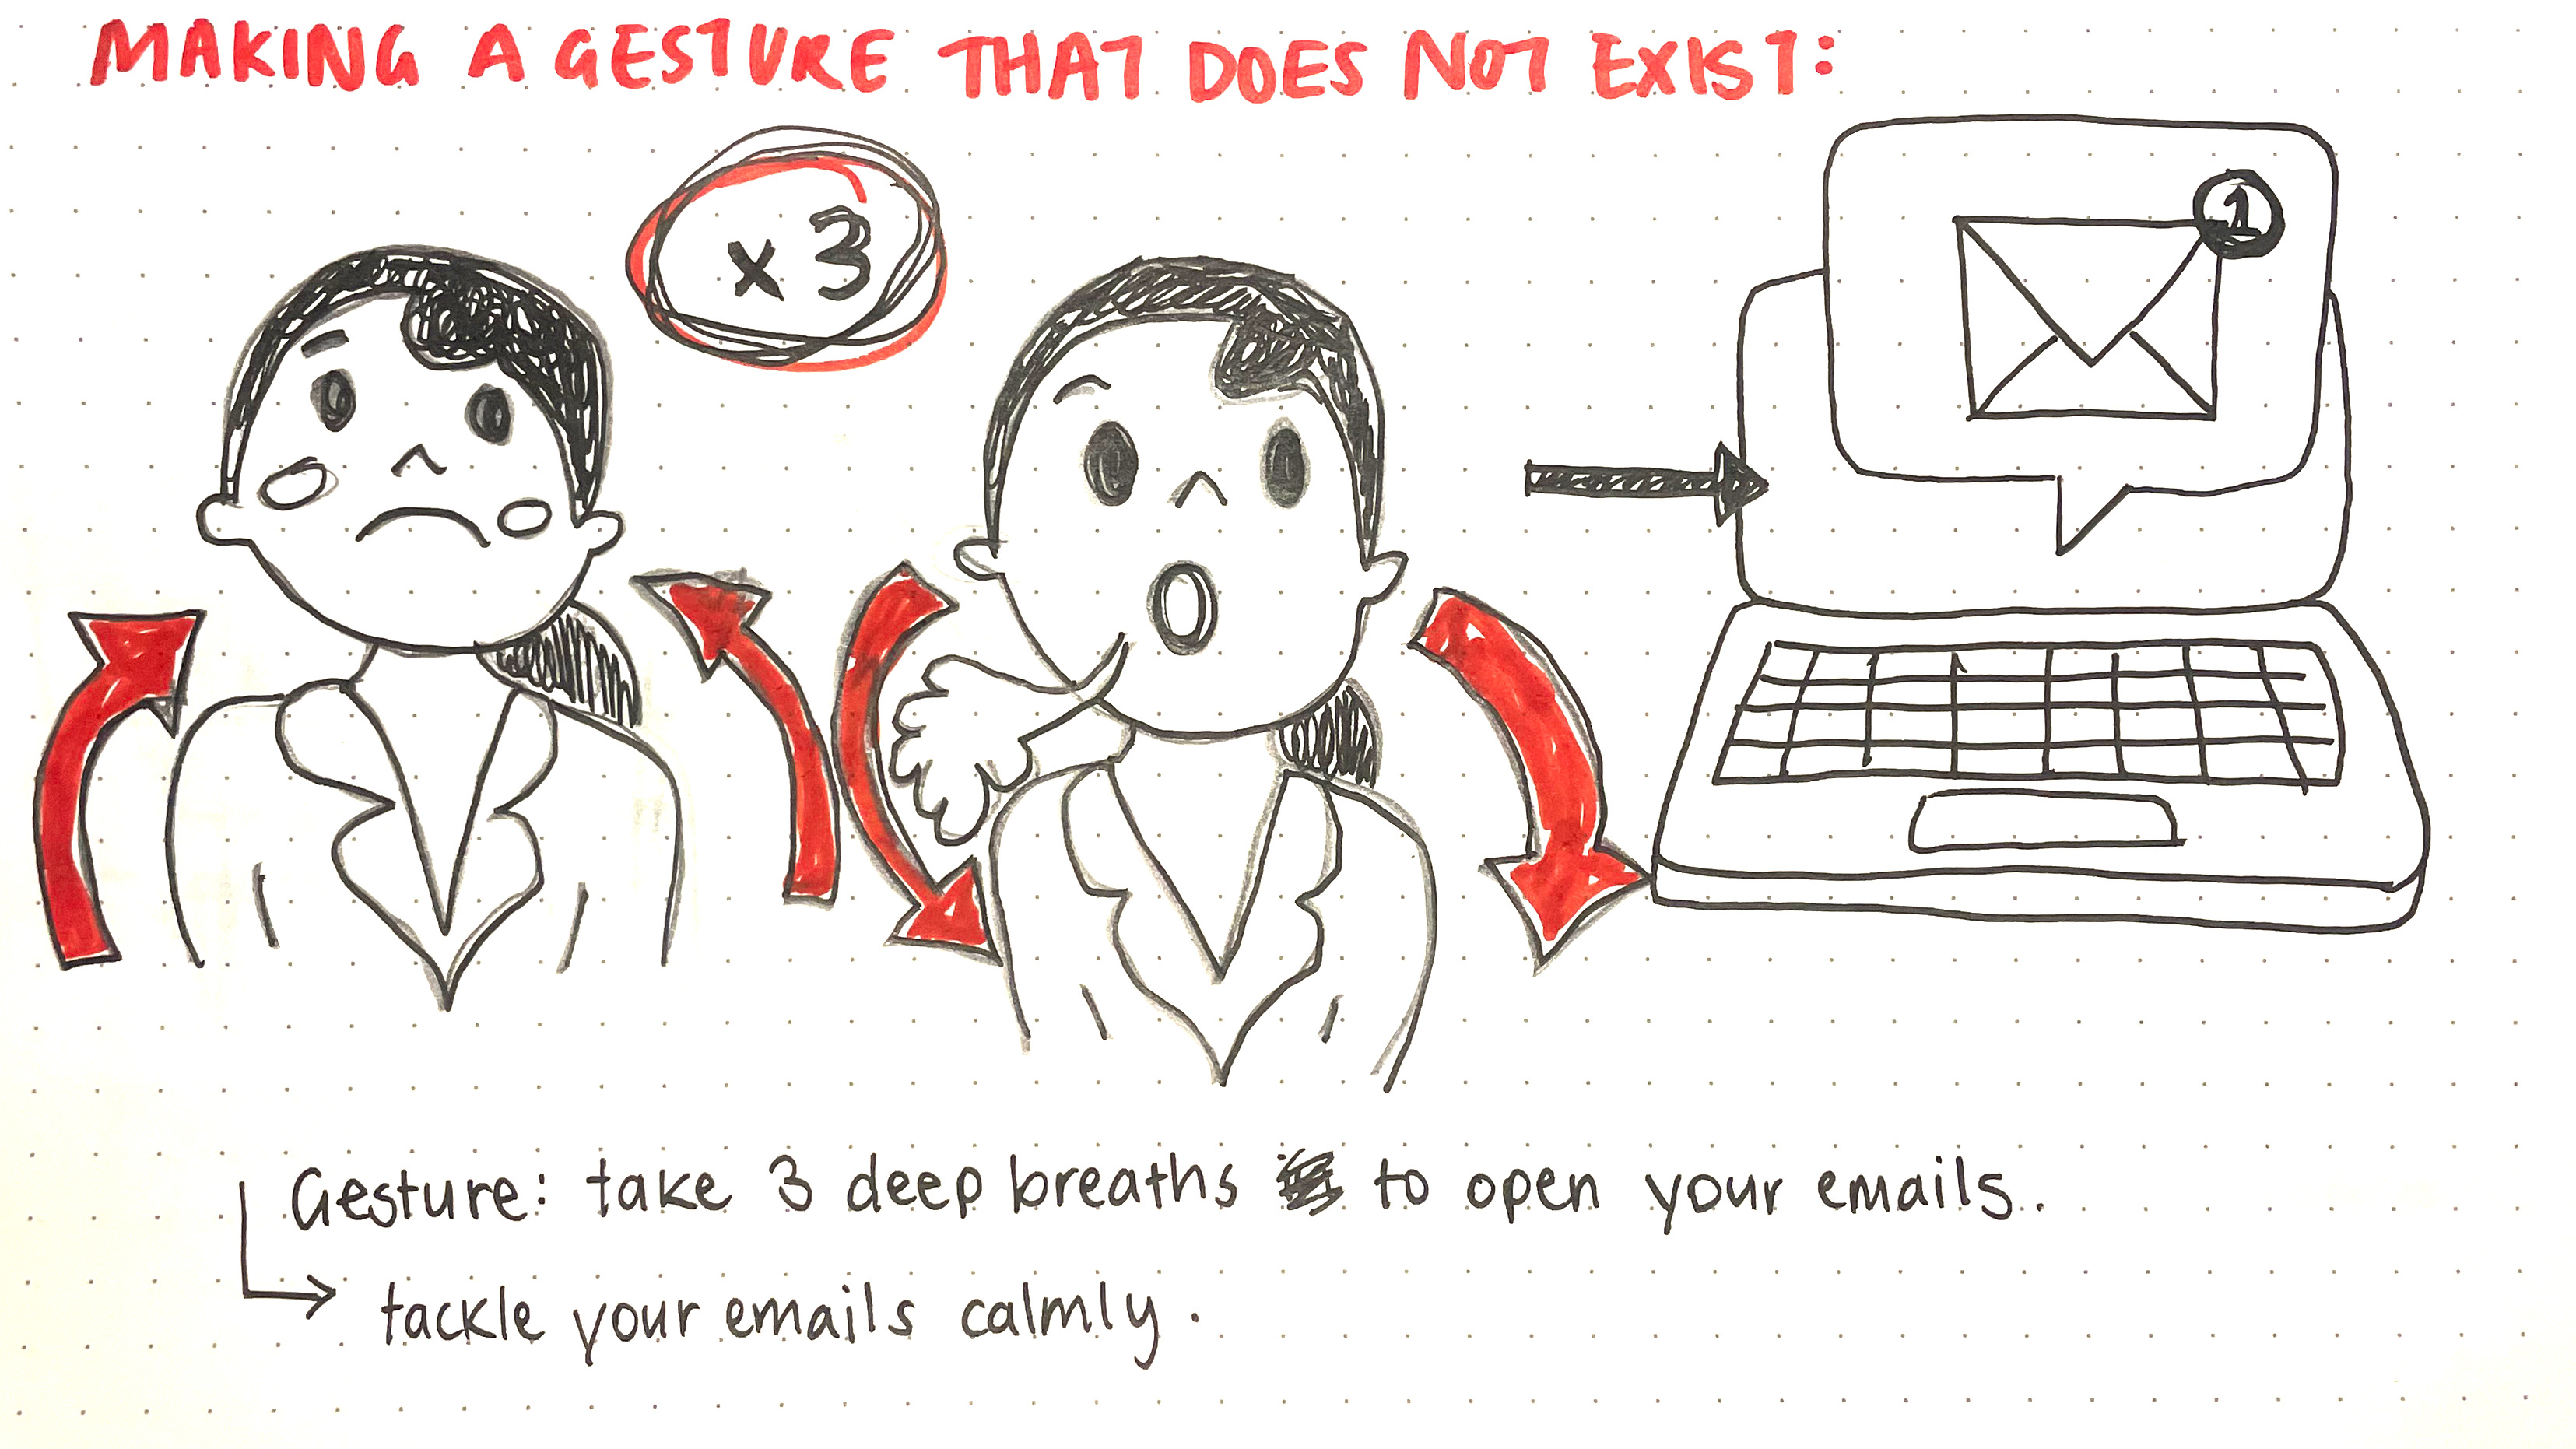 MAKING A GESTURE THAT DOES NOT EXIST:
x 3
1
Gesture: take 3 deep breaths to open your emails.
tackle your emails calmly.